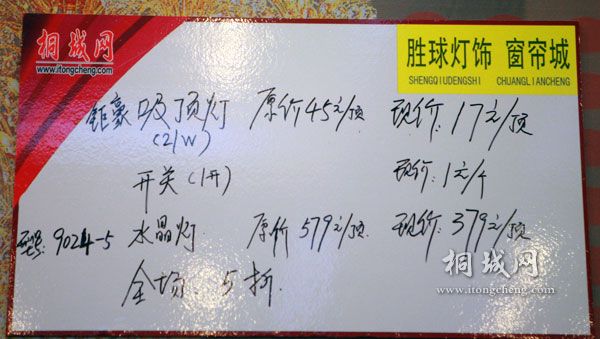 桐城网
www.itongcheng.com
胜球灯饰 窗帘城
SHENGQIUDENGSHI CHUANGLIANCHENG
钜豪 吸顶灯 原价45元/顶 现价:17元/顶
(21W)
开关(1开) 现价:1元/个
型号:9024-5 水晶灯 原价579元/顶 现价:379元/顶
全场:5折.
桐城网
www.itongcheng.com